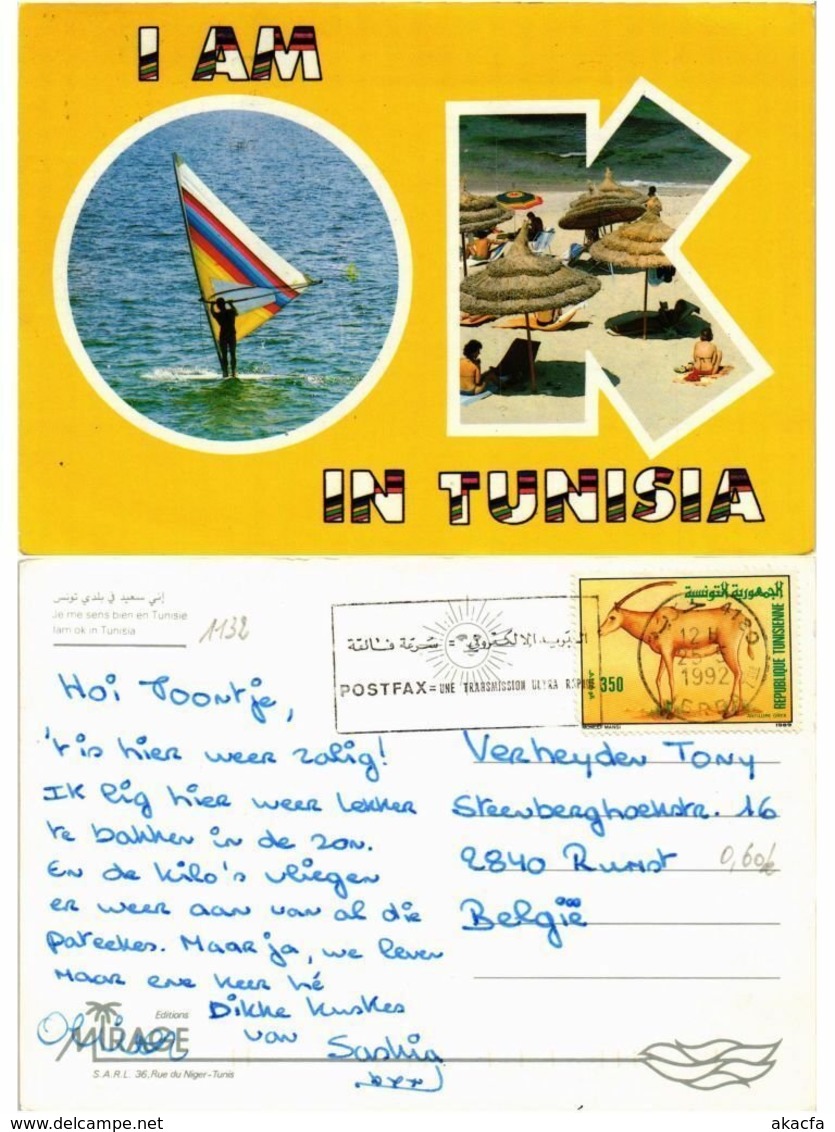 I AM
OK
IN TUNISIA
إني سعيد في بلدي تونس
Je me sens bien en Tunisie
Iam ok in Tunisia
1132
البريد الإلكتروني = سرعة فائقة
POSTFAX = UNE TRANSMISSION ULTRA RAPIDE
الجمهورية التونسية
REPUBLIQUE TUNISIENNE
350
12 H
1992
1989
Hoi Toontje,
't is hier weer zalig!
Ik lig hier weer lekker
te bakken in de zon.
En de kilo's vliegen
er weer aan van al die
pateekes. Maar ja, we leven
maar ene keer hé
Dikke kuskes
van
Saskia
xxx
Verheyden Tony
Steenberghoekstr. 16
2840 Rumst
0,60k
België
Editions
MIRAGE
S.A.R.L. 36, Rue du Niger-Tunis
akacfa